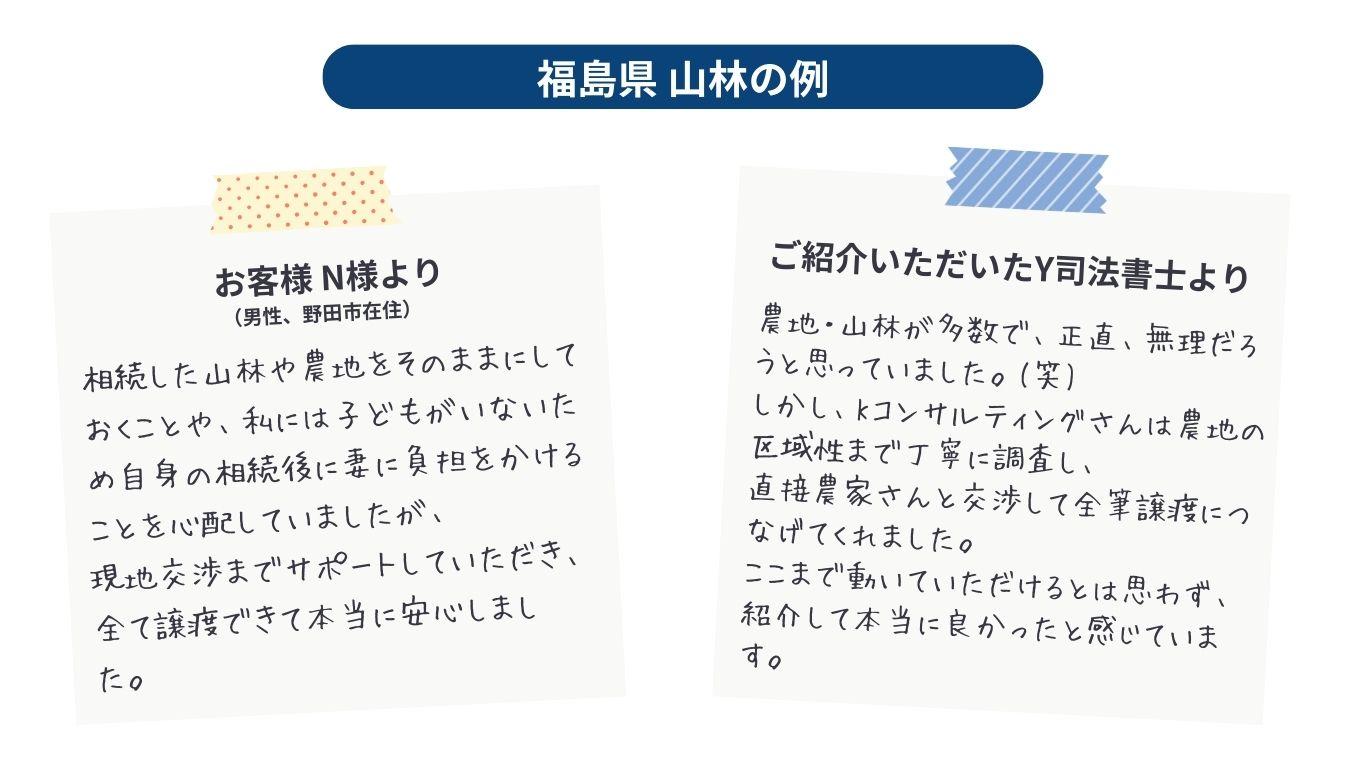 福島県 山林の例
お客様 N様より
（男性、野田市在住）
相続した山林や農地をそのままにして
おくことや、私には子どもがいないた
め自身の相続後に妻に負担をかける
ことを心配していましたが、
現地交渉までサポートしていただき、
全て譲渡できて本当に安心しまし
た。
ご紹介いただいたY司法書士より
農地・山林が多数で、正直、無理だろ
うと思っていました。（笑）
しかし、kコンサルティングさんは農地の
区域性まで丁寧に調査し、
直接農家さんと交渉して全筆譲渡につ
なげてくれました。
ここまで動いていただけるとは思わず、
紹介して本当に良かったと感じていま
す。